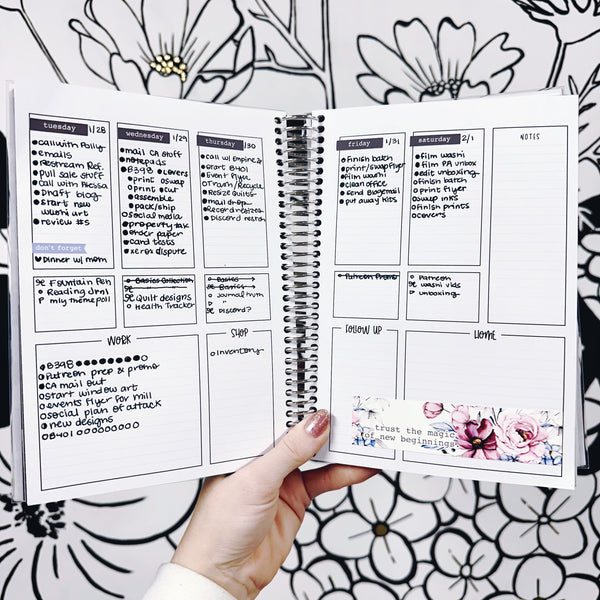 tuesday 1/28
call with Polly
emails
Restream Ref.
pull sale stuff
call with Alessa
Draft blog
start new
washi art
review #5
don't forget
Dinner w/ mom
Fountain Pen
Reading Jrnl
my theme poll
wednesday 1/29
mail CA stuff
notepads
B398 Lovers
print oswap
print out
assemble
pack/ship
social media
property tax
order paper
card tests
xerox dispute
Basics Collection
Quilt designs
Health Tracker
thursday 1/30
call w/ Empire
start B401
Event Flyer
Train/Recycle
Resize Quilts
mail drop
Record resizes
Discord
Basics
Basics
Journal
Discord?
friday 1/31
Finish batch
print/swap flyer
film washi
clean office
send Blogemail
put away kits
Patreon Promo
saturday 2/1
film washi
film PA unbox
edit unboxing
finish batch
print flyer
swap inks
Finish prints
covers
Patreon
washi vids
unboxing
NOTES
WORK
B398
Patreon prep & promo
CA mail out
start window art
events flyer for mill
social plan of attack
new designs
B401
SHOP
Inventory
FOLLOW UP
HOME
trust the magic
of new beginnings